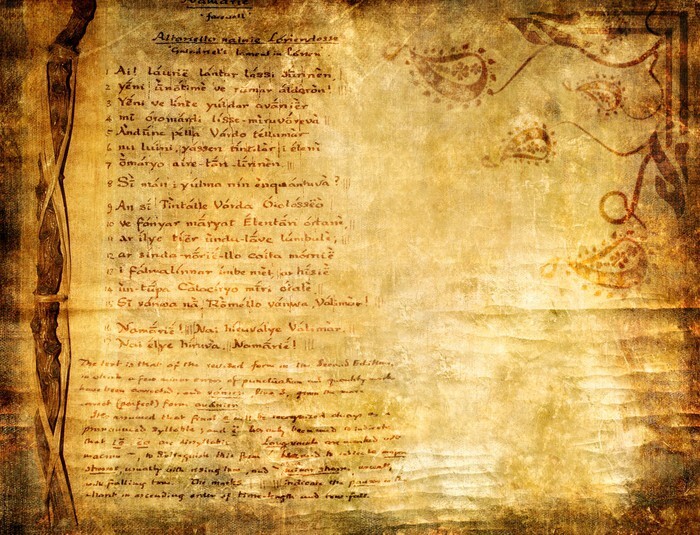 Namárië
'farewell'
Altariello nainië Lóriendesse
Galadriel's lament in Lórien
1 Ai! laurië lantar lassi súrinen,
2 yéni únótimë ve rámar aldaron!
3 Yéni ve lintë yuldar avánier
4 mi oromardi lisse-miruvóreva
5 Andúnë pella Vardo tellumar
6 nu luini, yassen tintilar i eleni
7 ómaryo aire-tári-lírinen.
8 Sí mán i yulma nin enquantuva?
9 An sí Tintallë Varda Oiolossëo
10 ve fanyar máryat Elentári ortanë,
11 ar ilyë tier undu-lávë lumbulë;
12 ar sinda-nórië-llo caita mornië
13 i falmalinnar imbe met, ar hísië
14 un-túpa Calaciryo míri oialë.
15 Sí vanwa ná, Rómello vanwa, Valimar!
16 Namárië! Nai hiruvalyë Valimar.
17 Nai elyë hiruva. Namárië!
The text is that of the revised form in the Second Edition,
in which a few minor errors of punctuation and quantity
have been corrected, and line 3, given the more
correct (perfect) form avánier.
It is assumed that final e will be recognized always as a
pronounced syllable; and ë has only been used to indicate
that are disyllabic. Long vowels are marked with
macron to distinguish this from
usually with rising tone, and
with falling tone. The marks indicate the
in ascending order of time-length and tone-fall.